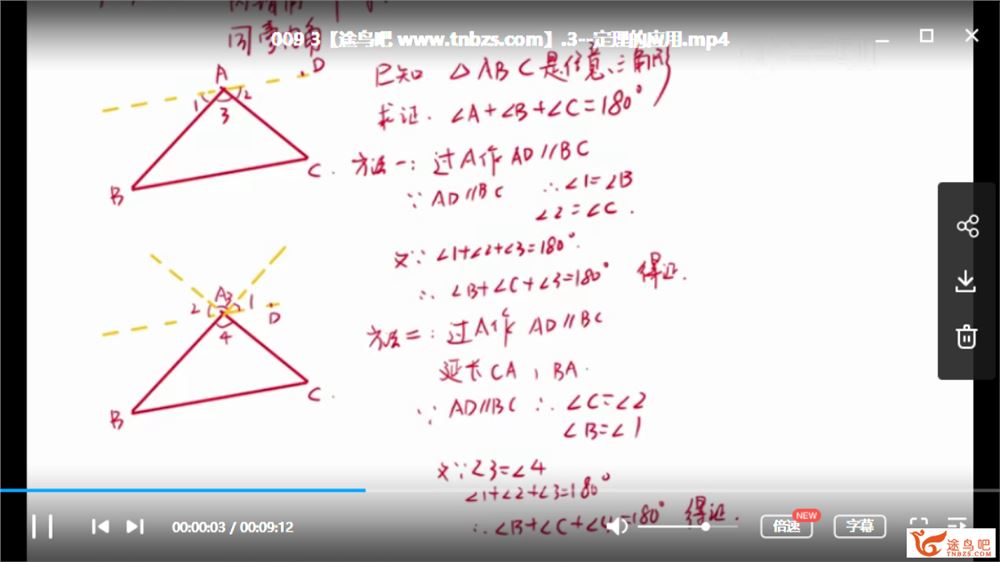 009 3【途鸟吧 www.tnbzs.com】.3--定理的应用.mp4
A
D
1
2
3
B
C
已知 △ABC是任意三角形
求证. ∠A+∠B+∠C=180°
方法一: 过A作 AD∥BC
∵ AD∥BC ∴∠1=∠B
∠2=∠C.
又∵ ∠1+∠2+∠3=180°
∴ ∠B+∠C+∠3=180° 得证.
A
3
2
1
D
4
B
C
方法二: 过A作 AD∥BC
延长CA, BA.
∵ AD∥BC ∴ ∠C=∠2
∠B=∠1
又∵∠3=∠4
∠1+∠2+∠3=180°
∴∠B+∠C+∠4=180° 得证.
00:00:03 / 00:09:12
倍速
NEW
字幕
途鸟吧
TNBZS.COM